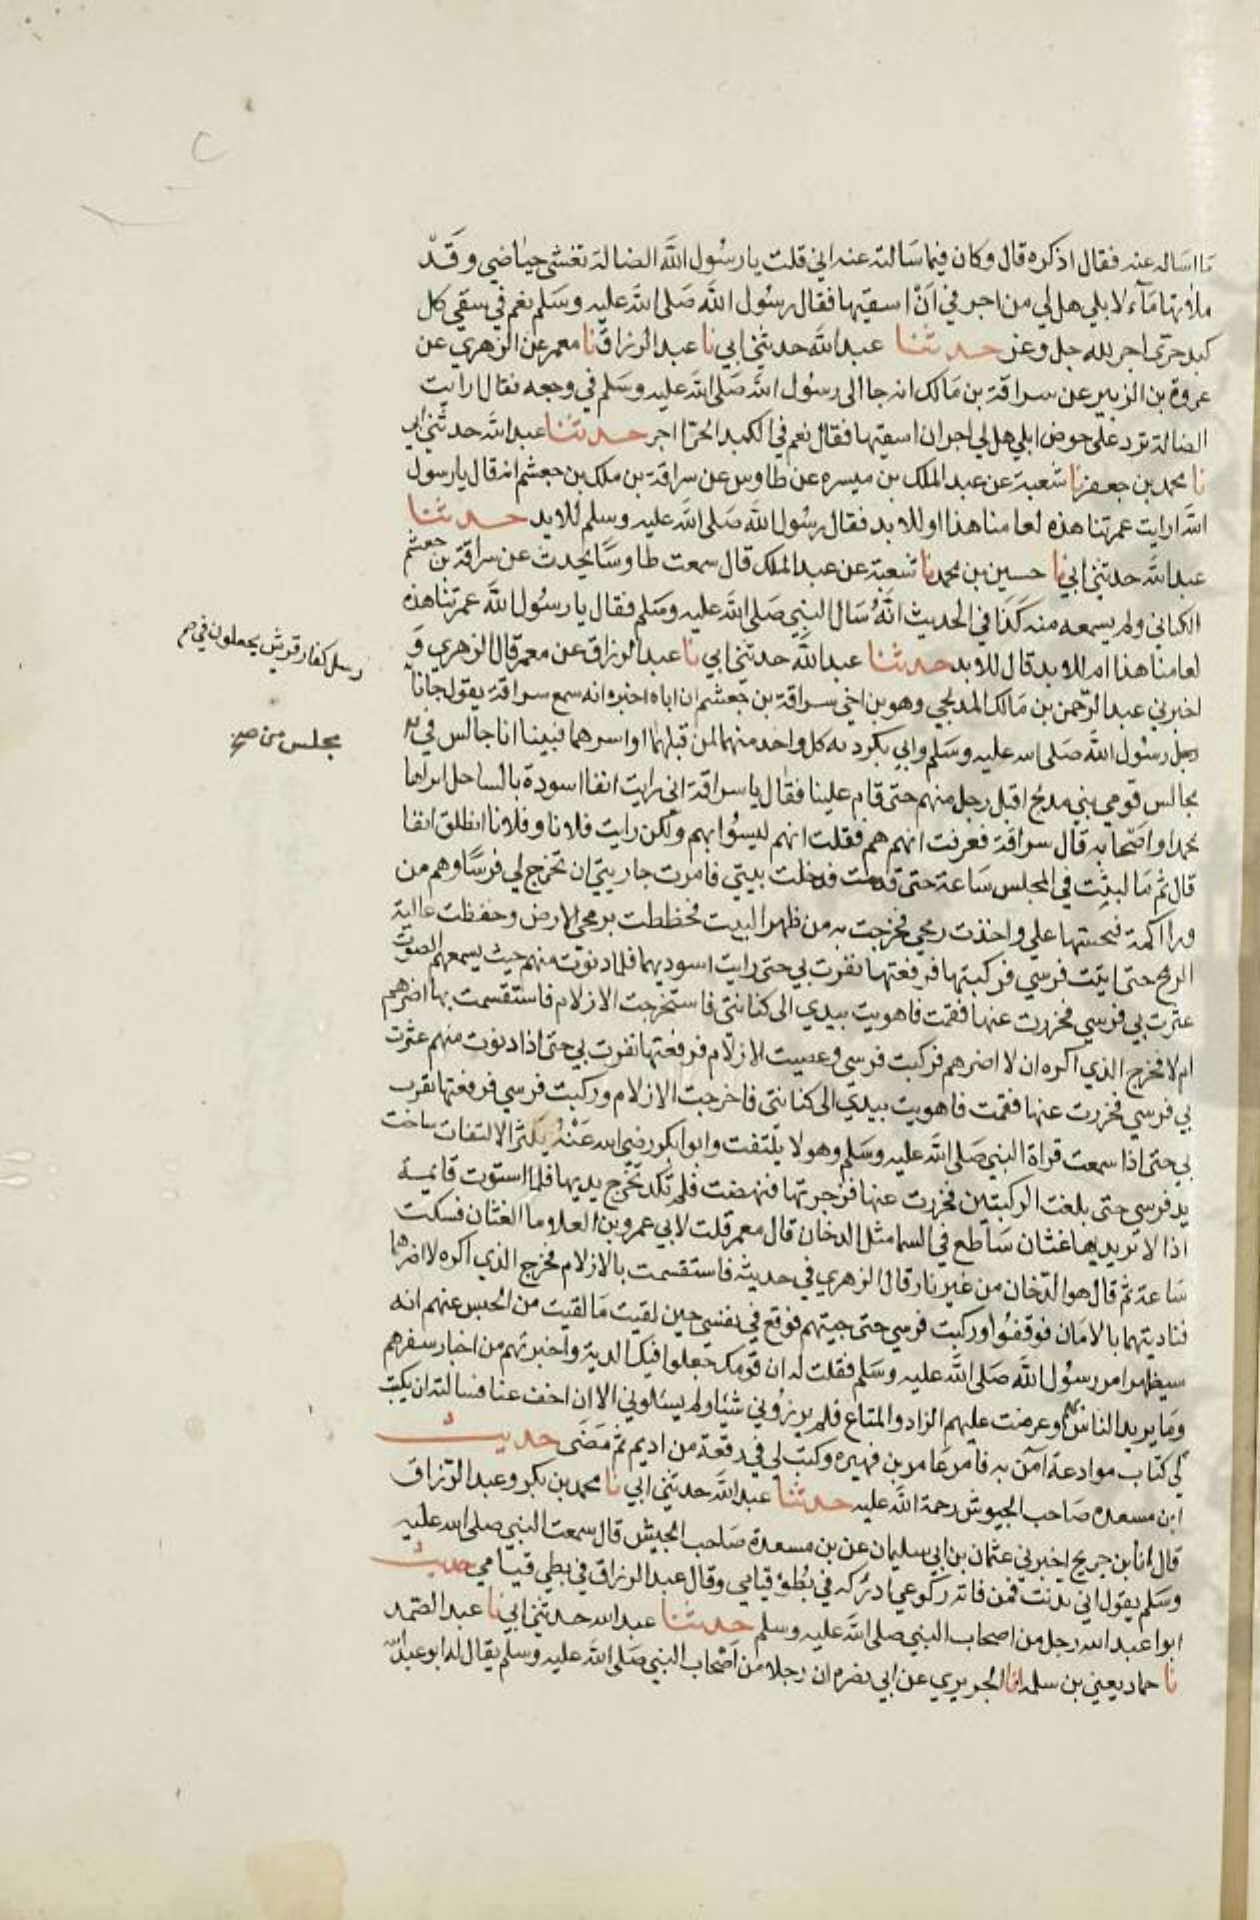 ما اساله عنه فقال اذكره قال وكان فيما سالته عنه اني قلت يا رسُول اللّه الضالة تغشى حياضي وقد
ملأتها مَآء لا بلي هل لي من اجر في اَنْ اسقيها فقال رسُول اللّه صَلى اللّه عليه وسَلم نعم في سقي كل
كبد حرّى اجر لله جل وعز حدثنا عبد اللّه حدثني ابي نا عبد الرزاق نا معمر عن الزهري عن
عروة بن الزبير عن سراقة بن مَالك انه جا الى رسُول اللّه صَلى اللّه عليه وسَلم في وجعه فقال ارايت
الضالة ترد على حوض ابلي هل لي اجر ان اسقيها فقال نعم في الكبد الحرّا اجر حدثنا عبد اللّه حدثني ابي
نا محمد بن جعفر نا شعبة عن عبد الملك بن ميسره عن طاوس عن سراقة بن ملك بن جعشم انه قال يا رسول
اللّه ارايت عمرتنا هذه لعامنا هذا او للابد فقال رسُول اللّه صَلى اللّه عليه وسلم للابد حدثنا
عبد اللّه حدثني ابي نا حسين بن محمد نا شعبة عن عبد الملك قال سمعت طاوسًا يحدث عن سراقة بن جعشم
الكناني ولم يسمعه منه كَذَا في الحديث انّهُ سَال النبي صَلى اللّه عليه وسَلم فقال يا رسُول اللّه عمرتنا هذه
لعامنا هذا ام للابد قال للابد حدثنا عبد اللّه حدثني ابي نا عبد الرزاق عن معمر قال الزهري وَ
اخبرني عبد الرّحمن بن مَالك المدلجي وهو بن اخي سراقة بن جعشم ان اباه اخبره انه سمع سراقة يقول جانا
رسل كفار قريش يجعلون في
رسُول اللّه صَلى الله عليه وسَلم وابي بكر دية كل واحد منهما لمن قتلهما او اسرهما فبينا انا جالس في
مجلس من صح
مجالس قومي بني مدلج اقبل رجل منهم حتى قام علينا فقال يا سراقة اني رايت انفا اسودة بالساحل اراها
محمدا واصْحابه قال سراقة فعرفت انهم هم فقلت انهم ليسُوا بهم ولكن رايت فلانا وفلانا انطلق انفا
قال ثم مَا لبثت في المجلس سَاعة حتى قمت فدخلت بيتي فامرت جاريتي ان تخرج لي فرسًا وهم من
ورا اكمة فتحبسها علي واخذت رمحي فخرجت به من ظهر البيت فخططت برمحي الارض وخفضت عالية
الرمح حتى اتيت فرسي فركبتها فرفعتها تقرب بي حتى رايت اسوديهما فلما دنوت منهم حيث يسمعهم الصوت
عثرت بي فرسي فخررت عنها فقمت فاهويت بيدي الى كنانتي فاستخرجت الازلام فاستقسمت بها اضرهم
ام لا فخرج الذي اكره ان لا اضرهم فركبت فرسي وعصيت الازلام فرفعتها تقرب بي حتى اذا دنوت منهم عثرت
بي فرسي فخررت عنها فقمت فاهويت بيدي الى كنانتي فاخرجت الازلام وركبت فرسي فرفعتها تقرب
بي حتى اذا سمعت قراة النبي صَلى اللّه عليه وسَلم وهو لا يلتفت وابوا بكر رضي الله عَنْهُ يكثر الالتفات ساخت
يد فرسي حتى بلغت الركبتين فخررت عنها فزجرتها فنهضت فلم تكد تخرج يديها فلما استوت قايمة
اذا لاثر يديها عثان سَاطع في السما مثل الدخان قال معمر قلت لابي عمرو بن العلا وما العثان فسكت
سَاعة ثم قال هو الدّخان من غير نار قال الزهري في حديثه فاستقسمت بالازلام فخرج الذي اكره لا اضرهما
فناديتهما بالامَان فوقفُوا وركبت فرسي حتى جيتهم فوقع في نفسي حين لقيت مَا لقيت من الحبس عنهم انه
سيظهر امر رسُول اللّه صَلى اللّه عليه وسَلم فقلت له ان قومك جعلوا فيك الدية واخبرتهم من اخبار سفرهم
وما يريد الناس وعرضت عليهم الزاد والمتاع فلم يرزُوني شيئا ولم يسئلوني الا ان اخف عنا فسالته ان يكتب
لي كتاب موادعة آمن به فامر عَامر بن فهيره وكتب لي في رقعة من اديم ثم مَضَى حديث
ابن مسعده صَاحب الجيوش رحمة اللّه عليه حدثنا عبد اللّه حدثني ابي نا محمد بن بكر وعبد الرّزاق
قال انا بن جريج اخبرني عثمان بن ابي سليمان عن بن مسعدة صَاحب الجيش قال سمعت النبي صلى الله عليه
وسَلم يقول اني بدنت فمن فاته ركوعي ادركه في بُطوء قيامي وقال عبد الرزاق في بطي قيامي حديث
ابوا عبد الله رجل من اصحاب النبي صلى اللّه عليه وسلم حدثنا عبد الله حدثني ابي نا عبد الصّمد
نا حماد يعني بن سلمه انا الجريري عن ابي نضره ان رجلا من اَصْحاب النبي صَلى اللّه عليه وسلم يقال له ابو عبد اللّه